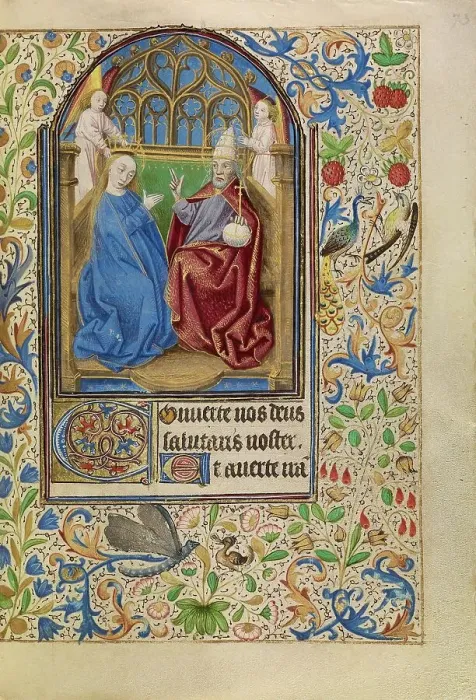 COnuerte nos deus
salutaris noster.
Et auerte irã